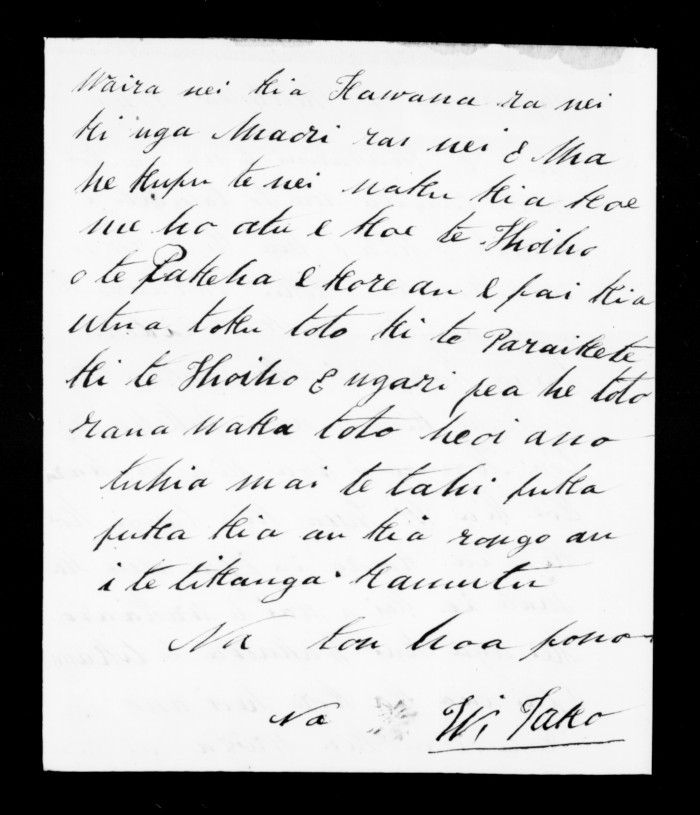 Waira nei kia Kawana ra nei
ki nga Maori ran nei E Ma
he kupu te nei naku kia koe
me ho atu e koe te Hoiho
o te Pakeha E kore au E pai kia
utua toku toto ki te Paraikete
ki te Hoiho E ngari pea he toto
rana waka toto heoi ano
tuhia mai te tahi puka
puka kia au kia rongo au
i te tikanga. Kamutu
Na ton hoa pono
Na Wi Tako